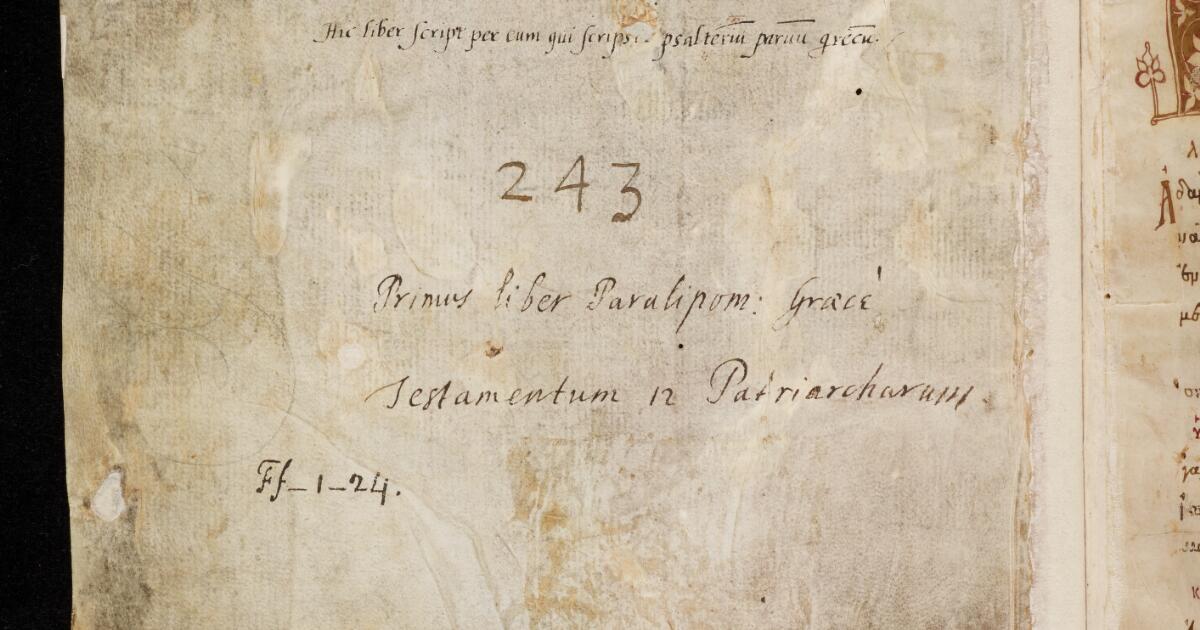 Hic liber script per eum qui scripsi psalteriū paruū grecū.
243
Primus liber Paralipom: Græcè
Testamentum 12 Patriarcharum.
Ff-1-24.